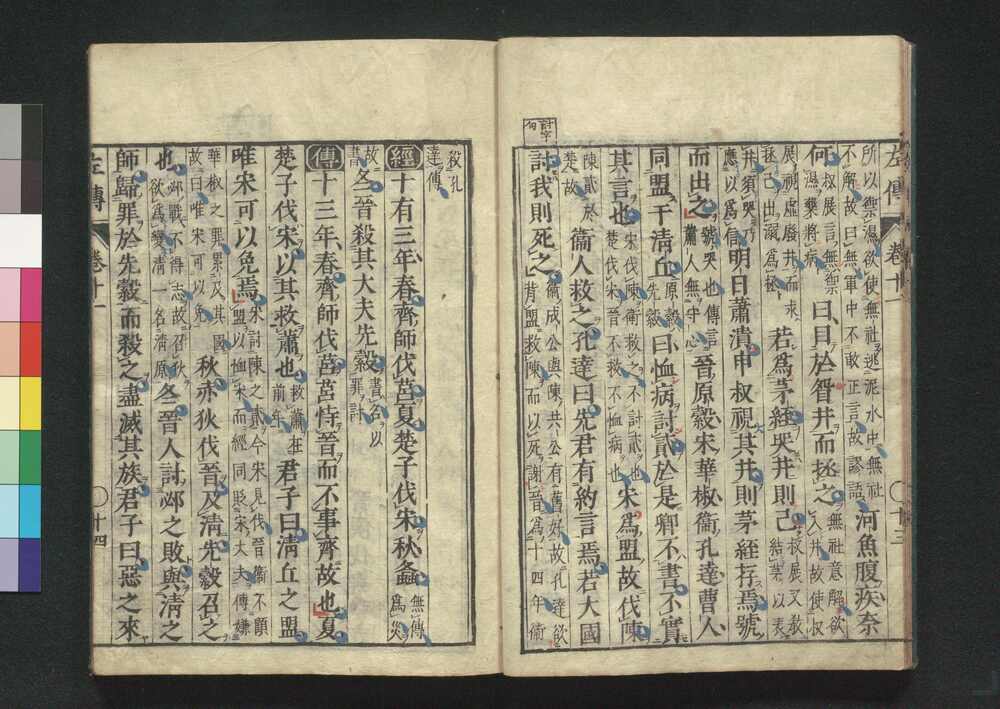 所以禦濕欲使無社逃泥水中無社
不解故曰無軍中不敢正言故謬語河魚腹疾奈
何叔展言無禦濕藥將病曰目於眢井而拯之無社意解欲入井故使叔
展視虛廢井而求拯己出溺為拯若為茅絰哭井則己叔展又教結茅以表
井須哭乃應以為信明日蕭潰申叔視其井則茅絰存焉號
而出之號哭也傳言蕭人無守心晉原縠宋華椒衞孔達曹人
同盟于清丘原縠先縠曰恤病討貳於是卿不書不實
其言也宋伐陳衞救之不討貳也楚伐宋晉不救不恤病也宋為盟故伐陳
陳貳於楚故衞人救之孔達曰先君有約言焉若大國
討我則死之衞成公與陳共公有舊好故孔達欲背盟救陳而以死謝晉為十四年衞
討字句
左傳 卷十一 〇十三
殺孔達傳
經十有三年春齊師伐莒夏楚子伐宋秋螽無傳為災
故書冬晉殺其大夫先縠書名以罪討
傳十三年春齊師伐莒莒恃晉而不事齊故也夏
楚子伐宋以其救蕭也救蕭在前年君子曰清丘之盟
唯宋可以免焉宋討陳之貳今宋見伐晉衞不顧盟以恤宋而經同貶宋大夫傳嫌
華椒之罪累及其國故曰唯宋可以免秋赤狄伐晉及清先縠召之
也邲戰不得志故召狄欲為變清一名清原冬晉人討邲之敗與清之
師歸罪於先縠而殺之盡滅其族君子曰惡之來
左傳 卷十一 〇十四